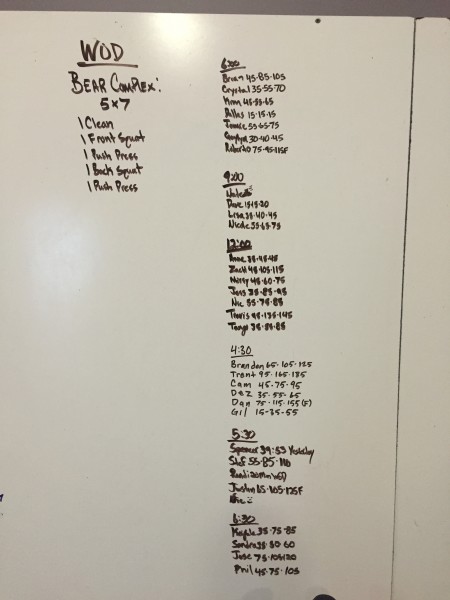 WOD
BEAR COMPLEX:
5x7
1 Clean
1 Front Squat
1 Push Press
1 Back Squat
1 Push Press
6:00
Brian 45-85-105
Crystal 35-55-70
45-55-65
Dallas 15-15-15
55-65-75
30-40-45
Roberto 75-95-115F
9:00
Dave 15-15-20
Lisa 35-40-45
Nicole 55-65-75
12:00
Anne 35-45-45
Zach 45-105-115
Missy 45-60-75
Jess 35-85-95
Nic 55-75-85
Travis 95-135-145
Tonya 35-55-85
4:30
Brandon 65-105-125
Trent 95-165-185
Cam 45-75-95
DEZ 35-55-65
Dan 75-115-155(F)
Gil 15-35-55
5:30
Spencer 39:53 Yesterday
55-85-110
Randi 20Min WOD
Justin 65-105-125F
6:30
Kayle 35-75-85
Sondra 35-50-60
Jose 75-105-120
Phil 45-75-105